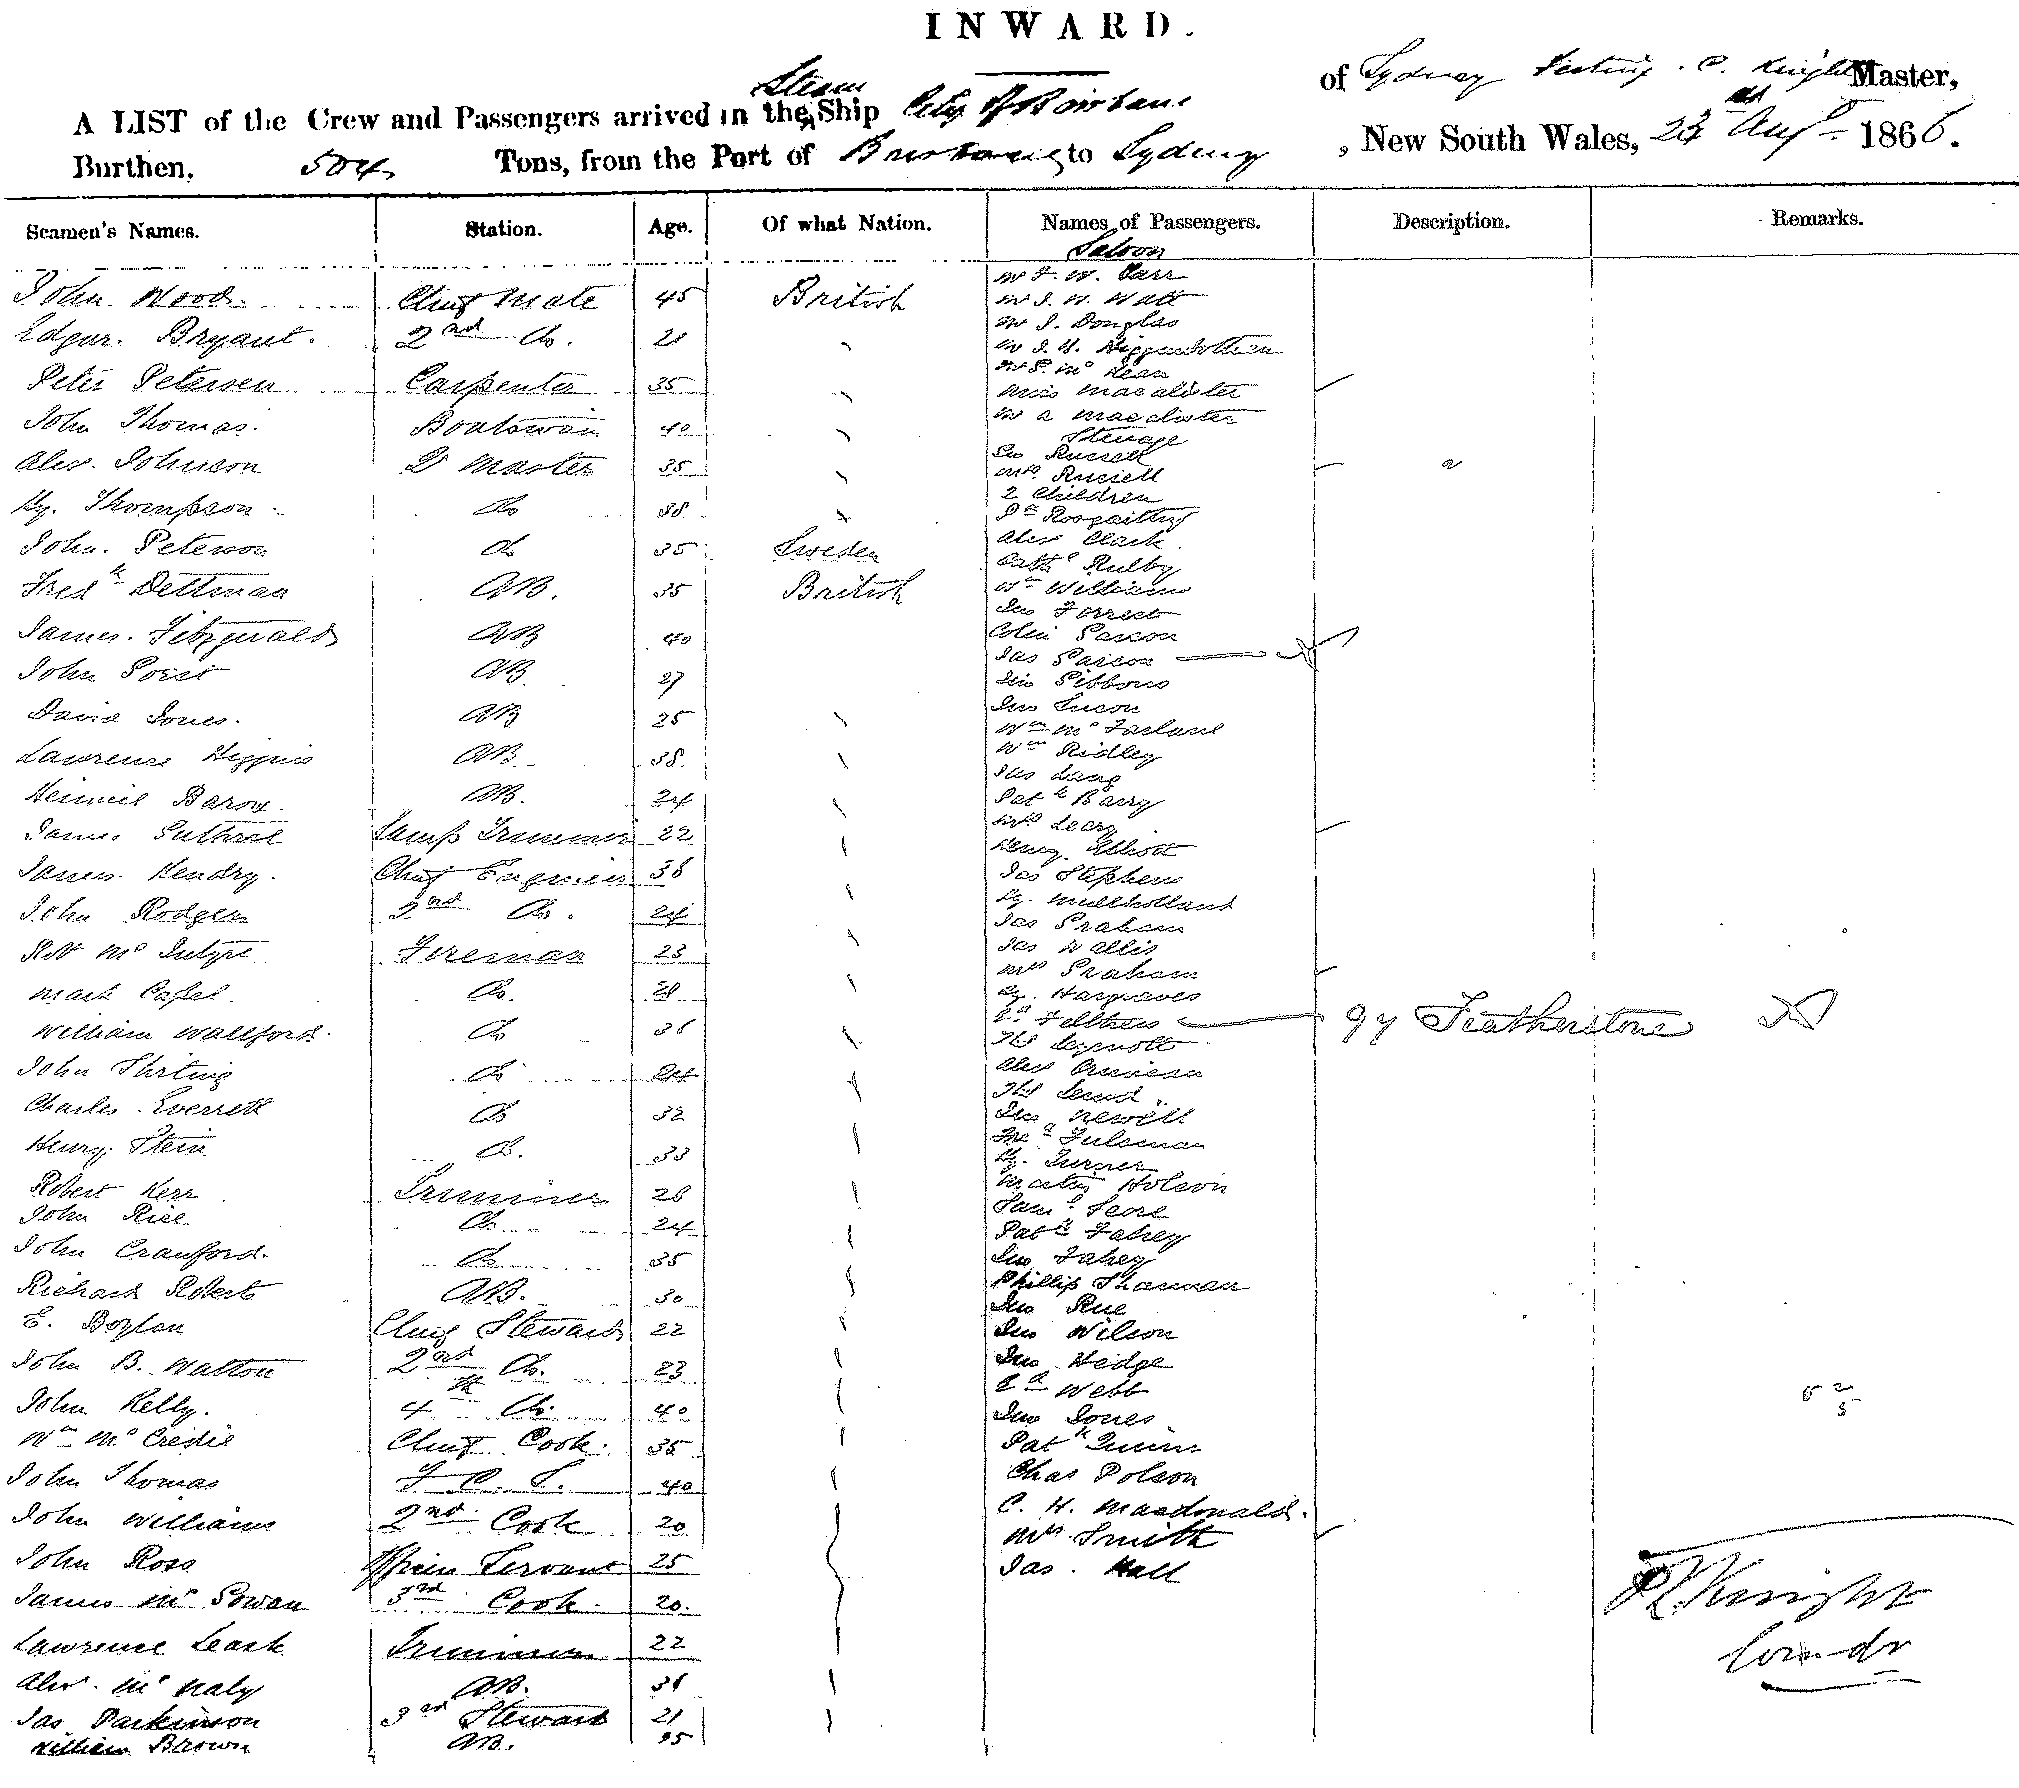 INWARD.
A LIST of the Crew and Passengers arrived in the Steam Ship City of Brisbane of Sydney C. Knight Master,
Burthen, 504 Tons, from the Port of Brisbane to Sydney, New South Wales, 23rd Augt 1866.
Seamen's Names. Station. Age. Of what Nation. Names of Passengers. Description. Remarks.
Saloon
John Wood. Chief Mate 45 British
Edgar. Bryant. 2nd Do.
Peter Petersen Carpenter 35
John Thomas. Boatswain 40
Alex. Johnson Q Master 35
Hy. Thompson Do 38
John. Peterson do 35 Sweden
Fredk Dettman AB. 35 British
James. Fitzgerald AB 40
John AB 27
David Jones. AB 25
Lawrence Higgins AB. 38.
AB. 24
James Lamp Trimmer 22
James Hendry. Chief Engineer 38
John Rodgers 2nd Do. 24
Robt McIntyre Fireman 23
Mark Do.
William Wallford. Do 36
John Do 24
Charles Everrett Do 32
Henry Stein Do. 33
Robert Kerr Trimmer 26
John Rice Do 24
John Cranford. Do 35
Richard Roberts AB. 30
E. Boylan Chief Steward 22
John B. Walton 2nd Do. 23
John Kelly. 4th Do. 40
Wm McCredie Chief Cook. 35
John Thomas F. C. S. 40
John Williams 2nd Cook 20
John Ross Servant 25
James McGowan 3rd Cook 20.
Lawrence Leask Trimmer 22
Alex. McNaly AB. 36
Jas Parkinson 3rd Steward 21
William Brown AB. 35
Mr F. W. Carr
Mr J. W. Watt
Mr J. Douglas
Mr J. H. Higginbotham
McLean
Miss Macalister
Mr A Macalister
Steerage
Jno Russell
Mrs Russell
2 Children
Alex Clark
Cath Rulby
Wm Williams
Jno Forrest
Colin
Jas
Jno Gibbons
Jno
Wm McFarland
Wm Ridley
Jas Lang
Patk Barry
Mrs Leary
Henry Elliott
Jas Stephens
Hy. Mullholland
Jas Graham
Jas Wallis
Mrs Graham
Hy. Hargraves
Ed gy Featherstone
Thos
Alex
Thos
Jno Newell
Hy. Turner
Martin
Saml
Patk Fahey
Jno Fahey
Phillip Shannan
Jno Rue
Jno Wilson
Jno Hedge
Ed Webb
Jno Jones
Patk Quinn
Chas Polson
C. H. Macdonald.
Mrs Smith
Jas. Hall
Knight
Comdr